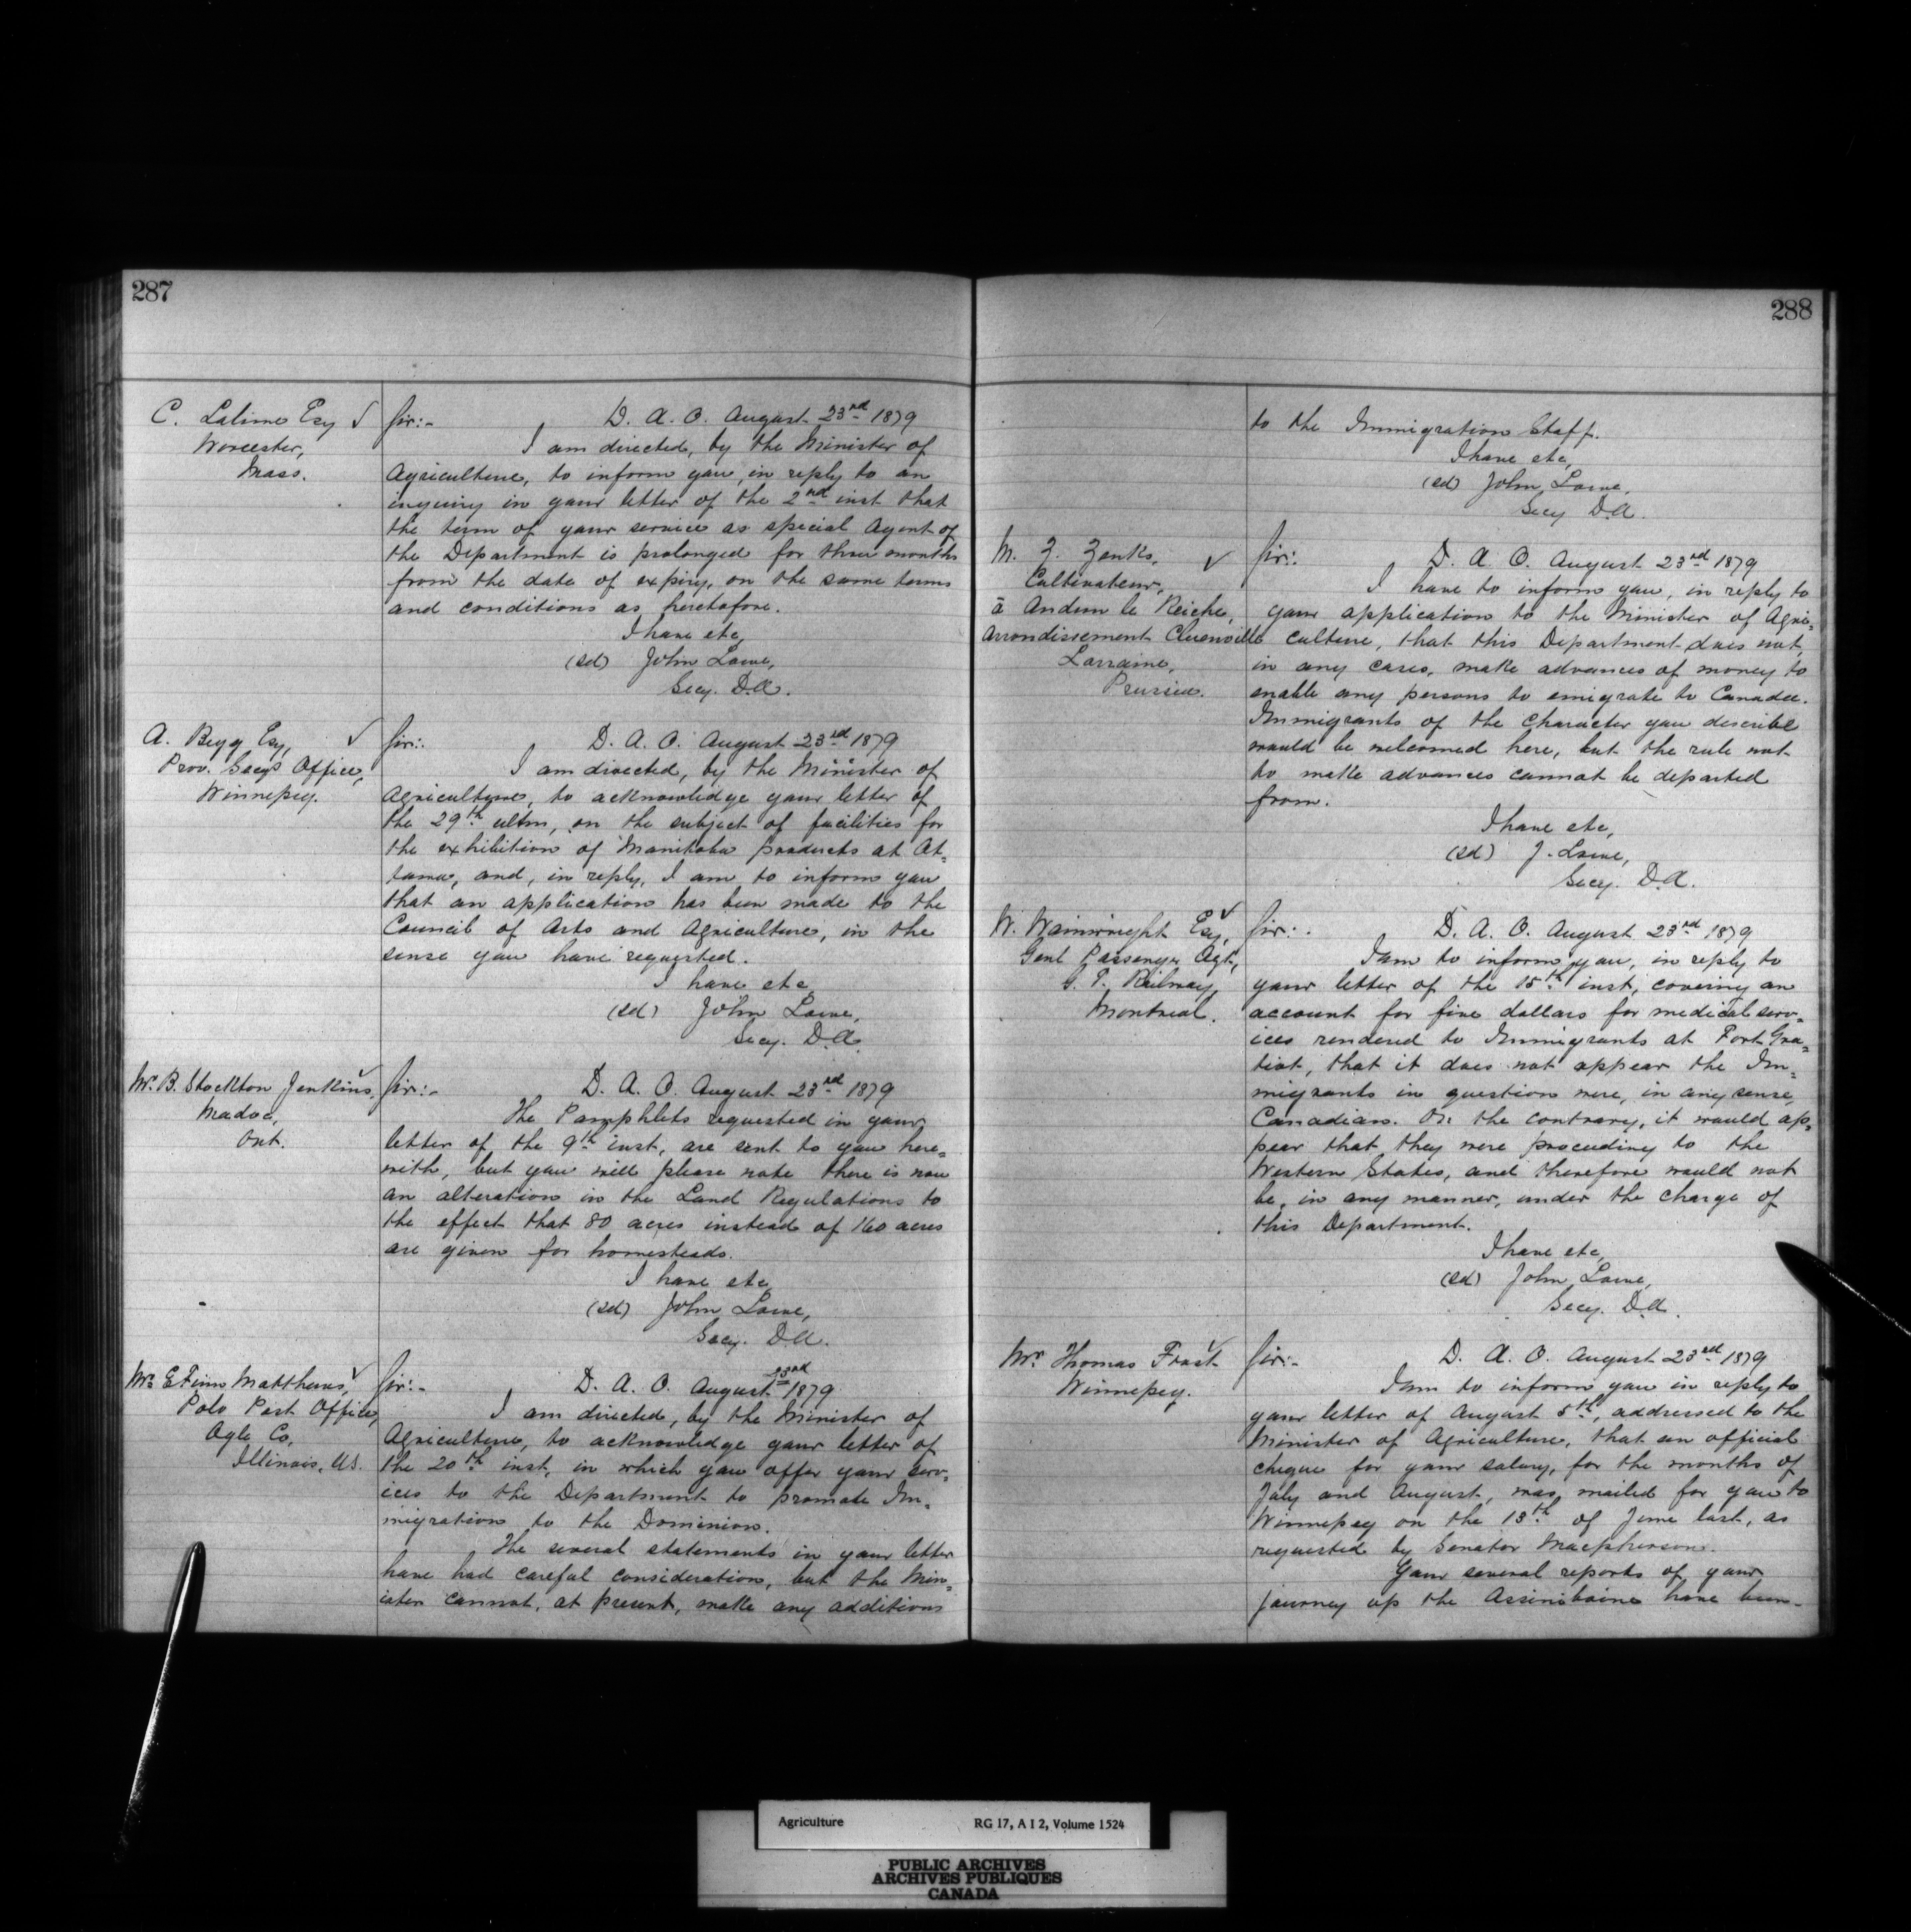 287
C. Lalime Esq √
Worcester,
Mass.
Sir:- D. A. O. August 23rd 1879
I am directed, by the Minister of
Agriculture, to inform you, in reply to an
inquiry in your letter of the 2nd inst that
the term of your service as special Agent of
the Department is prolonged for three months
from the date of expiry, on the same terms
and conditions as heretofore.
I have etc,
(sd) John Lowe,
Secy. D.A.
A. Begg Esq, √
Prov. Secys Office,
Winnepeg.
Sir:. D. A. O. August 23rd 1879
I am directed, by the Minister of
Agriculture, to acknowledge your letter of
the 29th ultm, on the subject of facilities for
the exhibition of Manitoba products at Ot=
tawa, and, in reply, I am to inform you
that an application has been made to the
Council of Arts and Agriculture, in the
sense you have requested.
I have etc
(sd) John Lowe,
Secy. D.A.
Mr. B. Stockton Jenkins, √
Madoc,
Ont.
Sir:- D. A. O. August 23rd 1879
The Pamphlets requested in your
letter of the 9th inst, are sent to you here=
with, but you will please note there is now
an alteration in the Land Regulations to
the effect that 80 acres instead of 160 acres
are given for homesteads.
I have etc
(sd) John Lowe,
Secy. D.A.
Matthews, √
Polo Post Office,
Ogle Co,
Illinois, US.
Sir:- D. A. O. August 23rd 1879
I am directed, by the Minister of
Agriculture, to acknowledge your letter of
the 20th inst, in which you offer your serv=
ices to the Department to promote Im=
migration to the Dominion.
The several statements in your letter
have had careful consideration, but the Min=
ister cannot, at present, make any additions
288
to the Immigration Staff.
I have etc,
(sd) John Lowe,
Secy D.A.
M. Z. Zenks, √
Cultivateur,
à Andun le Reiche,
Arrondissement
Lorraine,
Prussia.
Sir:. D. A. O. August 23rd 1879
I have to inform you, in reply to
your application to the Minister of Agri=
culture, that this Department does not,
in any cases, make advances of money to
enable any persons to emigrate to Canada.
Immigrants of the character you describe
would be welcomed here, but the rule not
to make advances cannot be departed
from.
I have etc,
(sd) J. Lowe,
Secy. D.A.
W. Wainwright Esq, √
Genl Passenger Agt,
G. T. Railway,
Montreal.
Sir:. D. A. O. August 23rd 1879
I am to inform you, in reply to
your letter of the 15th inst, covering an
account for five dollars for medical serv=
ices rendered to Immigrants at Fort Gra=
tiot, that it does not appear the Im=
migrants in question were, in any sense,
Canadian. On the contrary, it would ap=
pear that they were proceeding to the
Western States, and therefore would not
be, in any manner, under the charge of
this Department.
I have etc,
(sd) John Lowe,
Secy. D.A.
Mr. Thomas Frost √
Winnepeg.
Sir:- D. A. O. August 23rd 1879
I am to inform you in reply to
your letter of August 5th, addressed to the
Minister of Agriculture, that an official
cheque for your salary, for the months of
July and August, was mailed for you to
Winnepeg on the 13th of June last, as
requested by Senator Macpherson.
Your several reports of your
journey up the Assiniboine have been-
Agriculture RG 17, A I 2, Volume 1524
PUBLIC ARCHIVES
ARCHIVES PUBLIQUES
CANADA